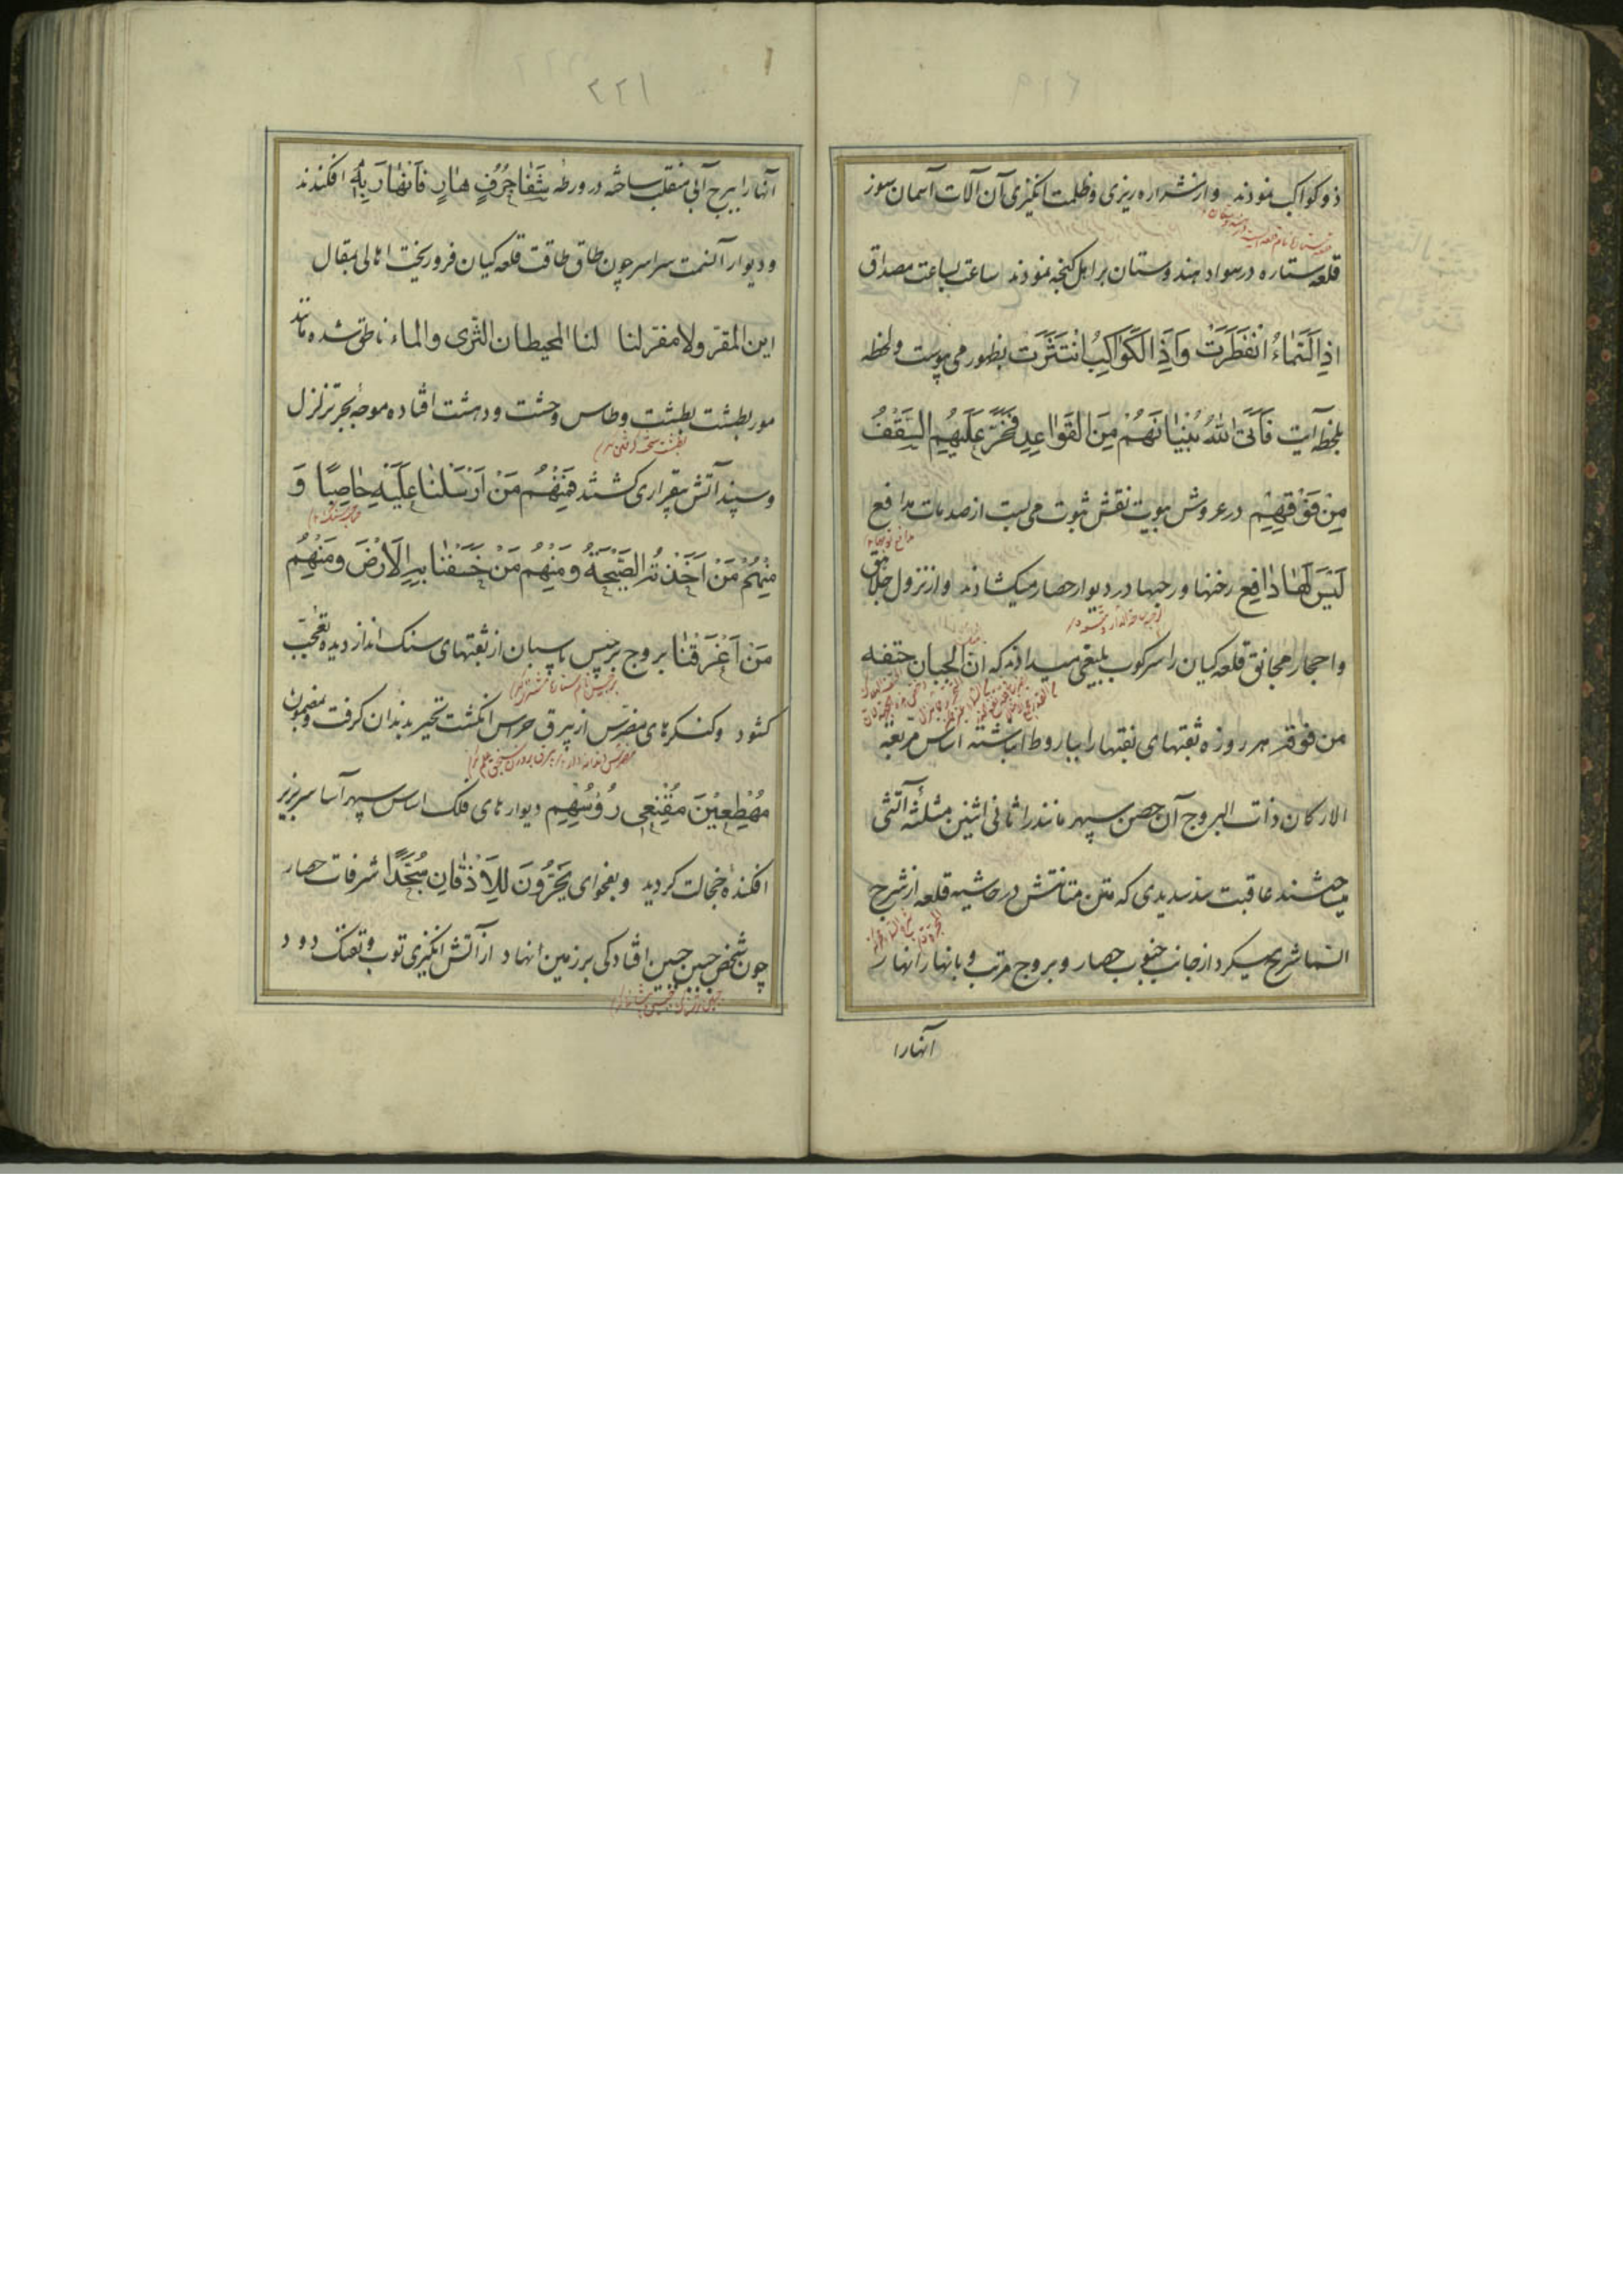 ذو کواکب نمودند و از شراره ریزی و ظلمت انگیزی آن آلات آسمان سوز
قلعه ستاره در سواد هندوستان بر اهل گنجه نمودند ساعت بساعت مصداق
اِذَا السَّمَاءُ انْفَطَرَتْ وَاِذَا الْکَوَاکِبُ انْتَثَرَتْ بظهور می پیوست و لحظه
بلحظه آیت فَاَتَی اللهُ بُنْیَانَهُمْ مِنَ الْقَوَاعِدِ فَخَرَّ عَلَیْهِمُ السَّقْفُ
مِنْ فَوْقِهِمْ در عروش بیوت نقش ثبوت می بست از صدمات مدافع
لَیْسَ لَهَا دَافِع رخنها و رجبها در دیوار حصار میکشادند و از نزول جلاهق
و احجار مجانیق قلعه کیان را سرکوب بلیغی میدادند که ان الجبان حتفه
من فوقه هر روزه ثقبهای نقبها را بباروط انباشته اساس مربعة
الارکان ذات البروج آن حصن سپهر مانند را ثانی اثنین مثلثه آتشی
میساختند عاقبت سد سدیدی که متن متانتش در حاشیه قلعه از شرح
السما شریح میکرد از جانب جنوب حصار و بروج مرتب و بانهار انهار
آنها را
۲۲۱
آنها را ببرج آبی منقلب ساخته در ورطه شَفَا جُرُفٍ هَارٍ فَانْهَارَ بِهِ افکندند
و دیوار آنسمت سراسر چون طاق طاقت قلعه کیان فرو ریخت اهالی بمقال
این المقر ولا مفر لنا لنا المحیطان الثری والماء ناطق شده مانند
مور بطشت بطشت و طاس وحشت و دهشت افتاده موجه بحر تزلزل
بطشت سخت گرفتن
و سپند آتش بیقراری کشتند فَمِنْهُمْ مَنْ اَرْسَلْنَا عَلَیْهِ حَاصِبًا وَ
مِنْهُمْ مَنْ اَخَذَتْهُ الصَّیْحَةُ وَمِنْهُمْ مَنْ خَسَفْنَا بِهِ الْاَرْضَ وَمِنْهُمْ
مَنْ اَغْرَقْنَا بروج برجیس پاسبان از ثقبتهای سنک انداز دیده تعجب
کشود و کنکرهای مضرس از بیرق حراس انکشت تحیر بدندان کرفت و بمضمون
مُهْطِعِیْنَ مُقْنِعِی رُؤُسِهِمْ دیوارهای فلک اساس سپهر آسا سر بزیر
افکنده خجالت کردید و بفحوای یَخِرُّوْنَ لِلْاَذْقَانِ سُجَّدًا شرفات حصار
چون شخص جبین جبین افتادکی بر زمین نهاد از آتش انکیزی توپ و تفنک دود